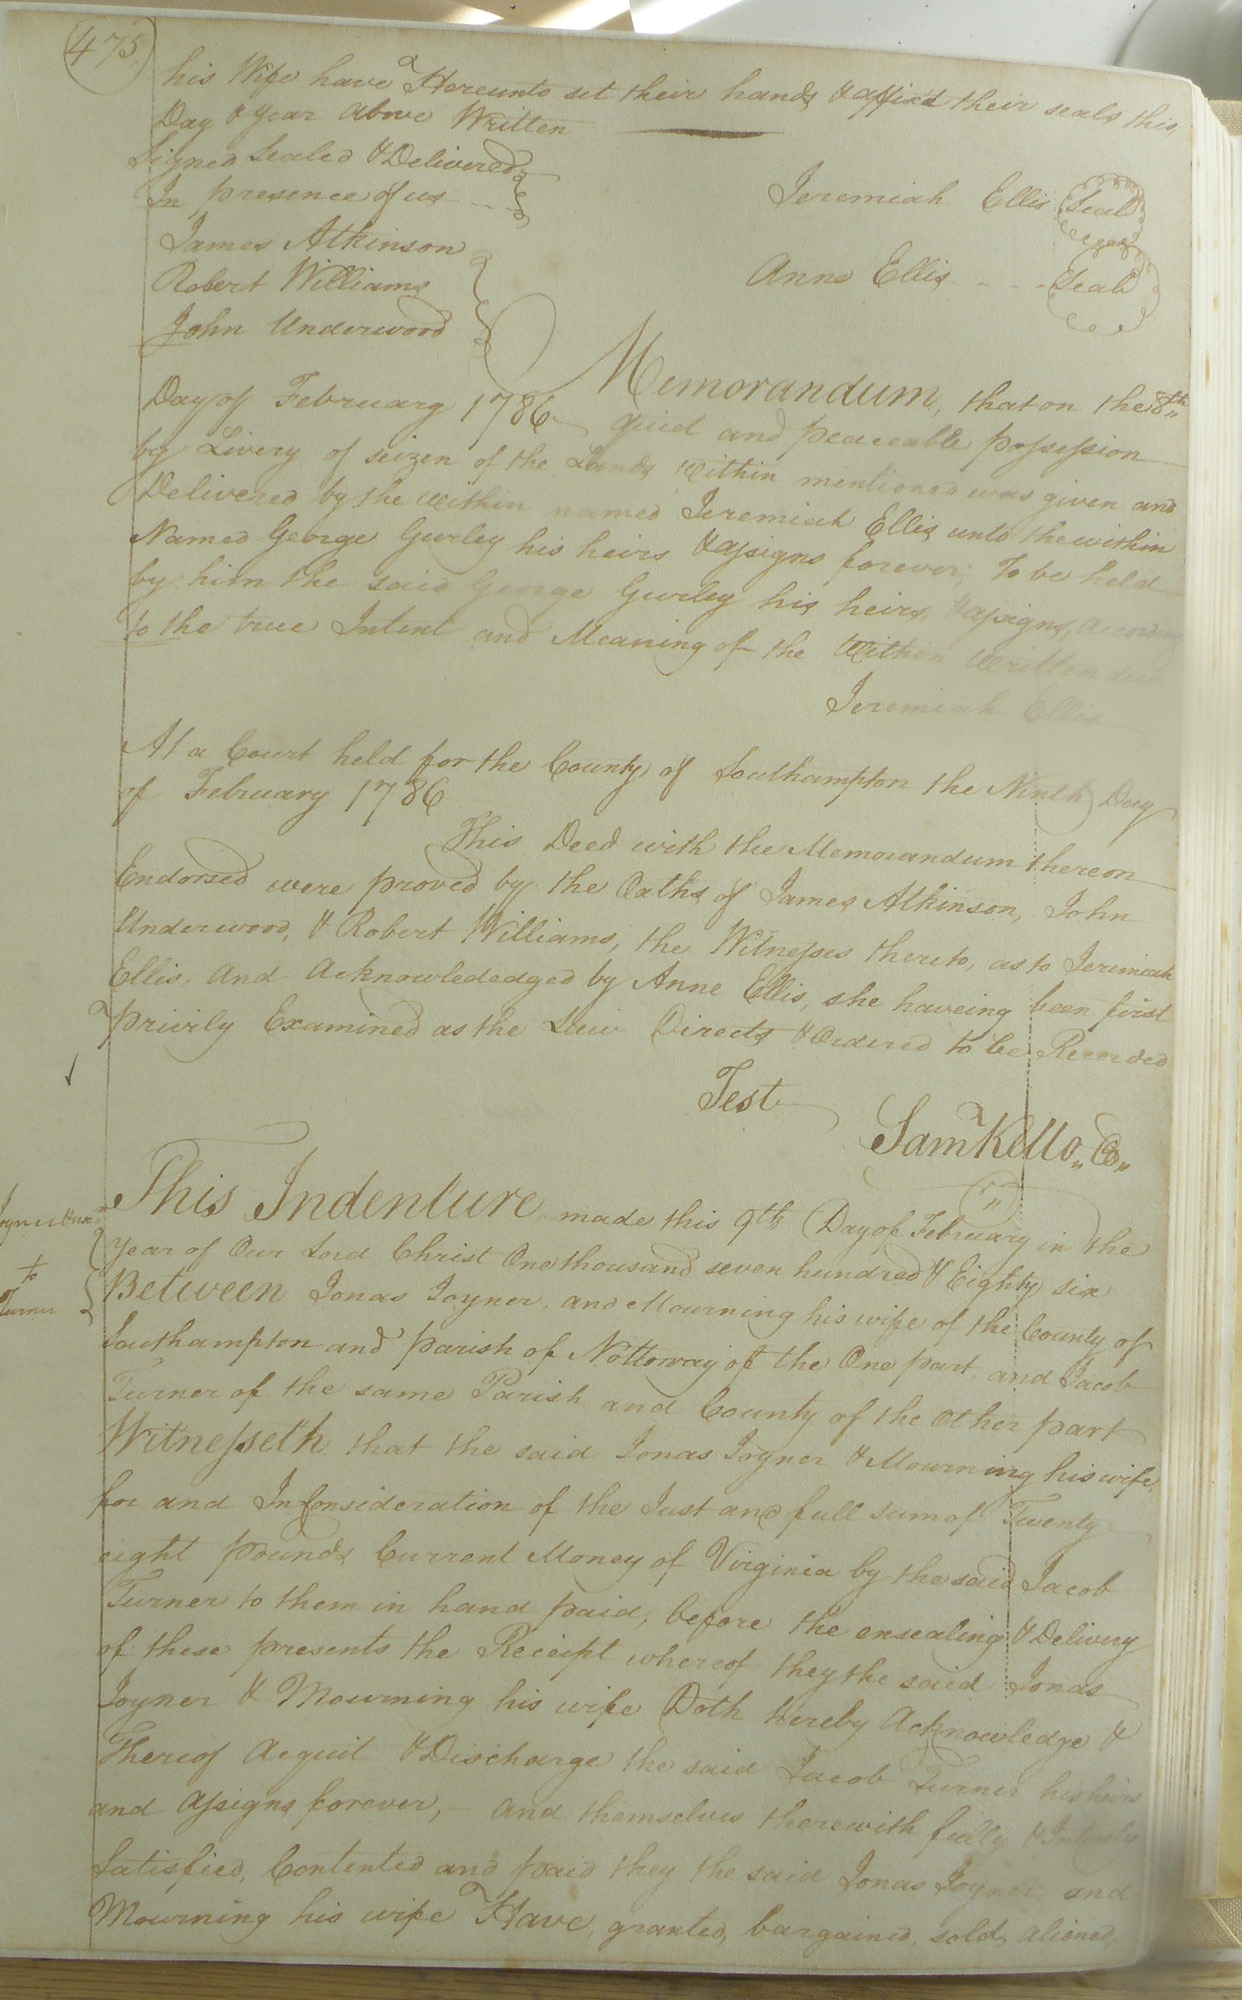 475
his Wife have Hereunto set their hands & affix'd their seals this
Day & Year Above Written
Signed Sealed & Delivered
In presence of us
Jeremiah Ellis Seal
James Atkinson
Robert Williams
Anne Ellis Seal
John Underwood
Memorandum, that on the 8th
Day of February 1786 quiet and peaceable possession
by Livery of seizen of the Lands Within mentioned was given and
Delivered by the within named Jeremiah Ellis unto the within
Named George Gurley his heirs & assigns forever, To be held
by him the said George Gurley his heirs, & assigns, According
to the true Intent and Meaning of the Within Written deed
Jeremiah Ellis
At a Court held for the County of Southampton the Ninth Day
of February 1786
This Deed with the Memorandum thereon
Endorsed were proved by the Oaths of James Atkinson, John
Underwood, & Robert Williams, the Witnesses thereto, as to Jeremiah
Ellis, And Acknowlededged by Anne Ellis, she haveing been first
privily Examined as the Law Directs & Ordered to be Recorded
Test
Saml Kello,, C,,
This Indenture made this 9th Day of February in the
Joyner & ux
to
Turner
Year of Our Lord Christ One thousand seven hundred & Eighty six
Between Jonas Joyner, and Mourning his wife of the County of
Southampton and Parish of Nottoway of the One part, and Jacob
Turner of the same Parish and County of the Other part
Witnesseth that the said Jonas Joyner & Mourning his wife,
for and In Consideration of the Just and full sum of Twenty
eight pounds Current Money of Virginia by the said Jacob
Turner to them in hand paid, before the ensealing & Delivery
of these presents the Receipt whereof they the said Jonas
Joyner & Mourning his wife Doth hereby Acknowledge &
Thereof Acquit & Discharge the said Jacob Turner his heirs
and Assigns forever, — and themselves therewith fully & Intirely
Satisfied, Contented and paid they the said Jonas Joyner and
Mourning his wife Have, granted, bargained, sold, aliened,